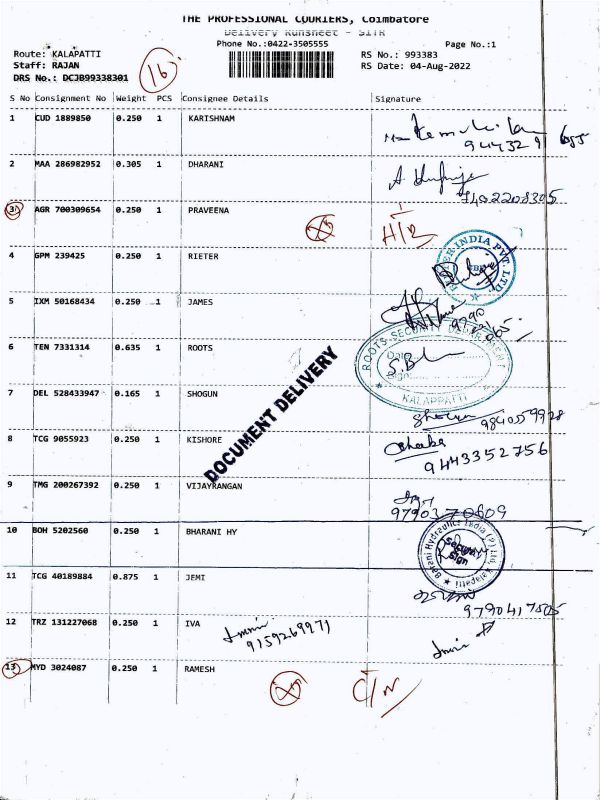 THE PROFESSIONAL COURIERS, Coimbatore
Delivery Runsheet - SITR
Phone No.:0422-3505555
Page No.:1
Route: KALAPATTI
Staff: RAJAN
DRS No.: DCJB99338301
16
RS No.: 993383
RS Date: 04-Aug-2022
S No Consignment No Weight PCS Consignee Details Signature
1 CUD 1889850 0.250 1 KARISHNAM
2 MAA 286982952 0.305 1 DHARANI
7402208305
3 AGR 700309654 0.250 1 PRAVEENA
4 GPM 239425 0.250 1 RIETER
RIETER INDIA PVT. LTD.
5 IXM 50168434 0.250 1 JAMES
6 TEN 7331314 0.635 1 ROOTS
KALAPPATTI
DOCUMENT DELIVERY
7 DEL 528433947 0.165 1 SHOGUN
9840559928
8 TCG 9055923 0.250 1 KISHORE
9443352756
9 TMG 200267392 0.250 1 VIJAYRANGAN
9790370609
10 BOH 5202560 0.250 1 BHARANI HY
Security
Sign
11 TCG 40189884 0.875 1 JEMI
9790417505
12 TRZ 131227068 0.250 1 IVA
9159269971
13 MYD 3024087 0.250 1 RAMESH